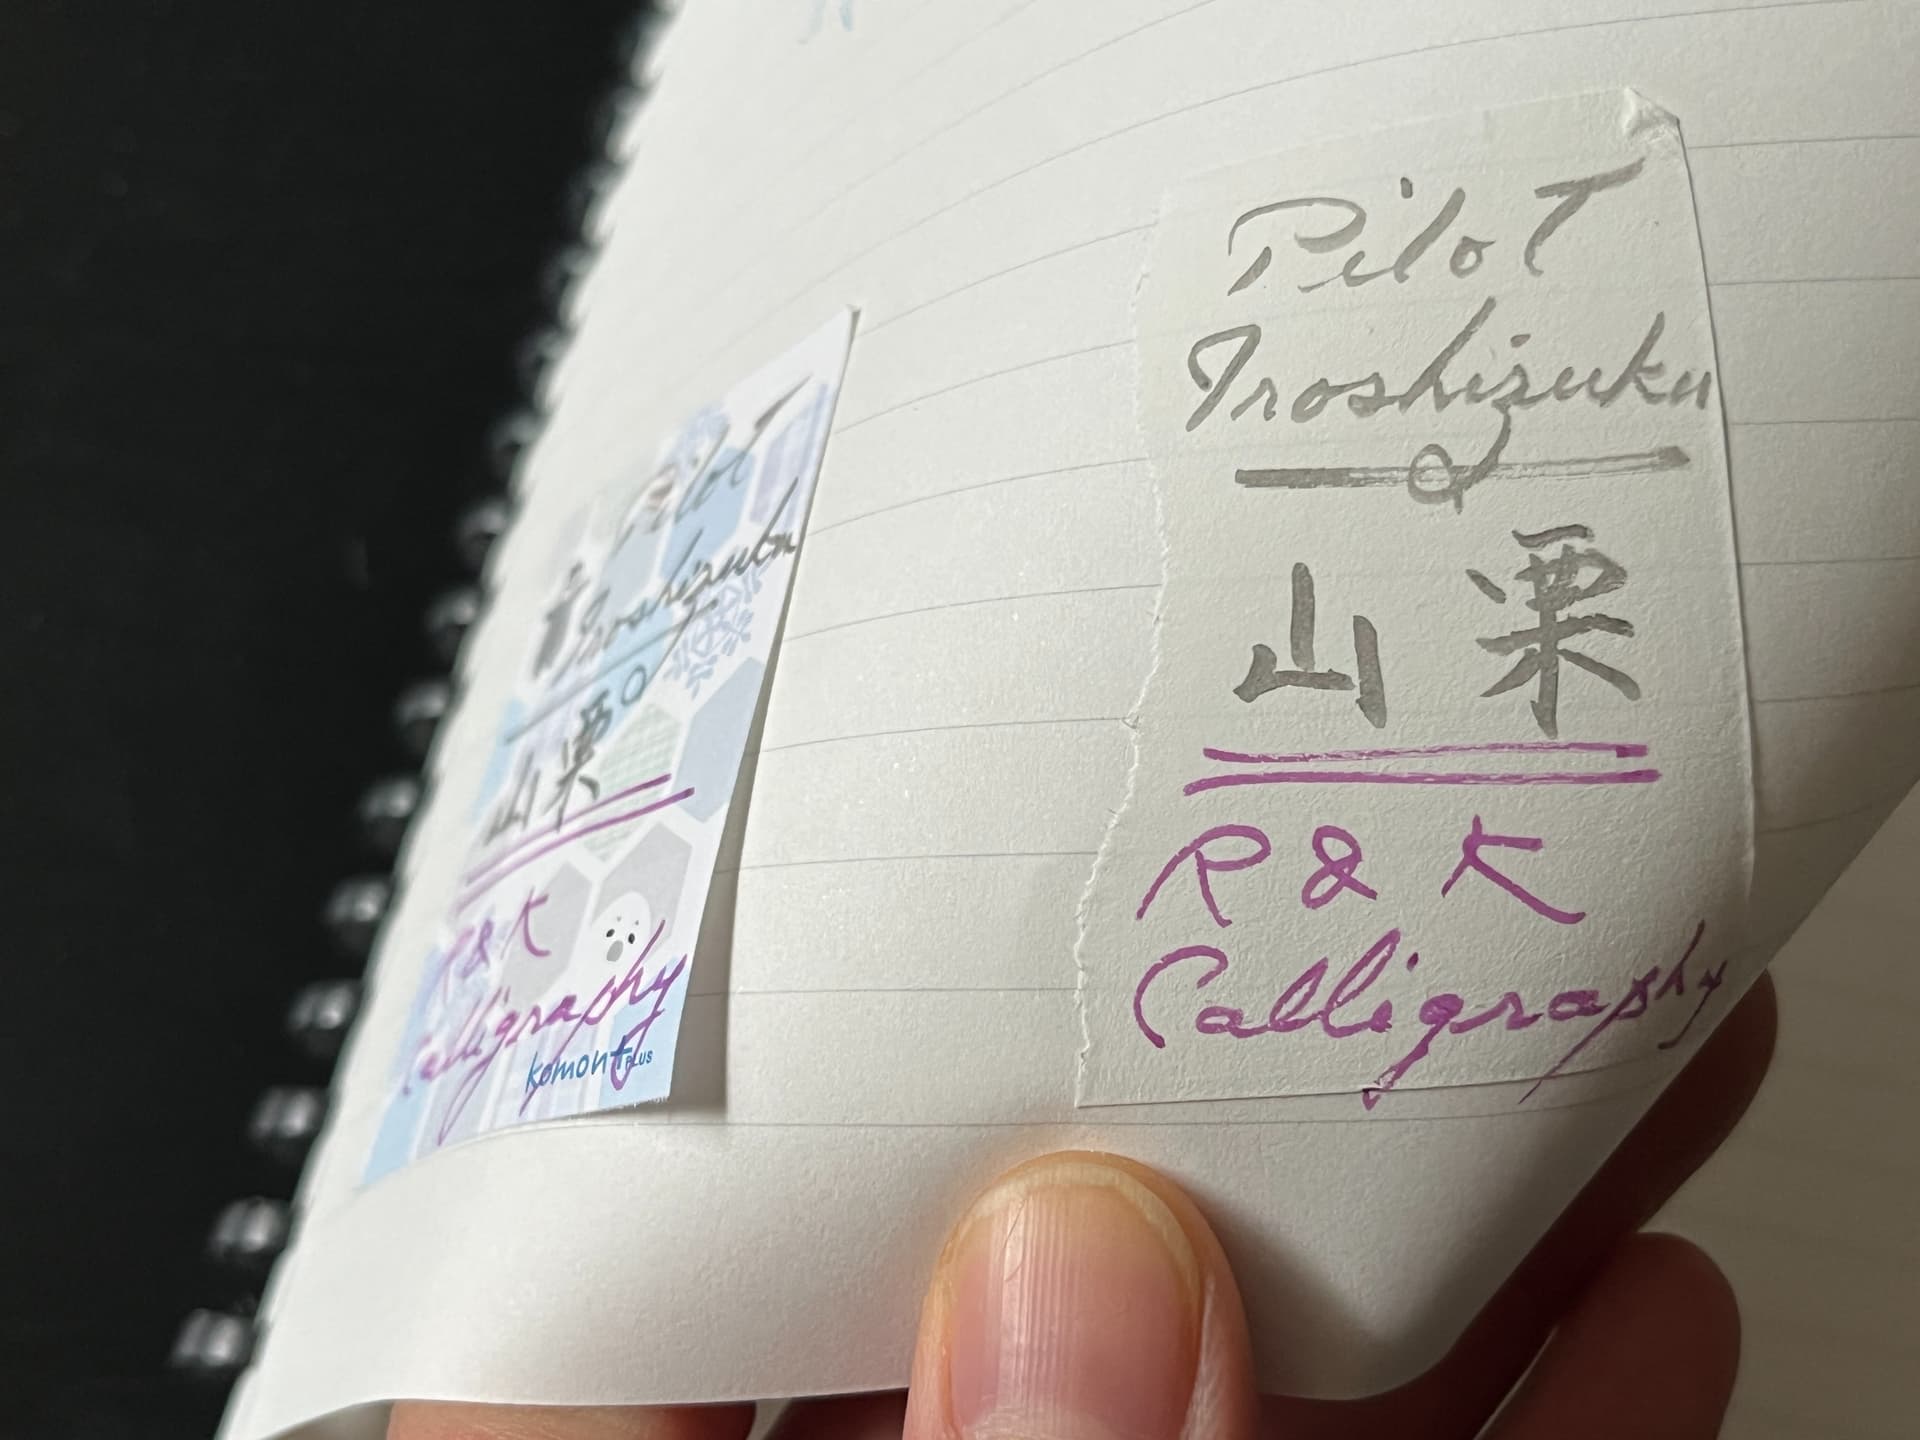 Pilot
Iroshizuku
山栗
R & K
Calligraphy
komon+PLUS
Pilot
Iroshizuku
山栗
R & K
Calligraphy